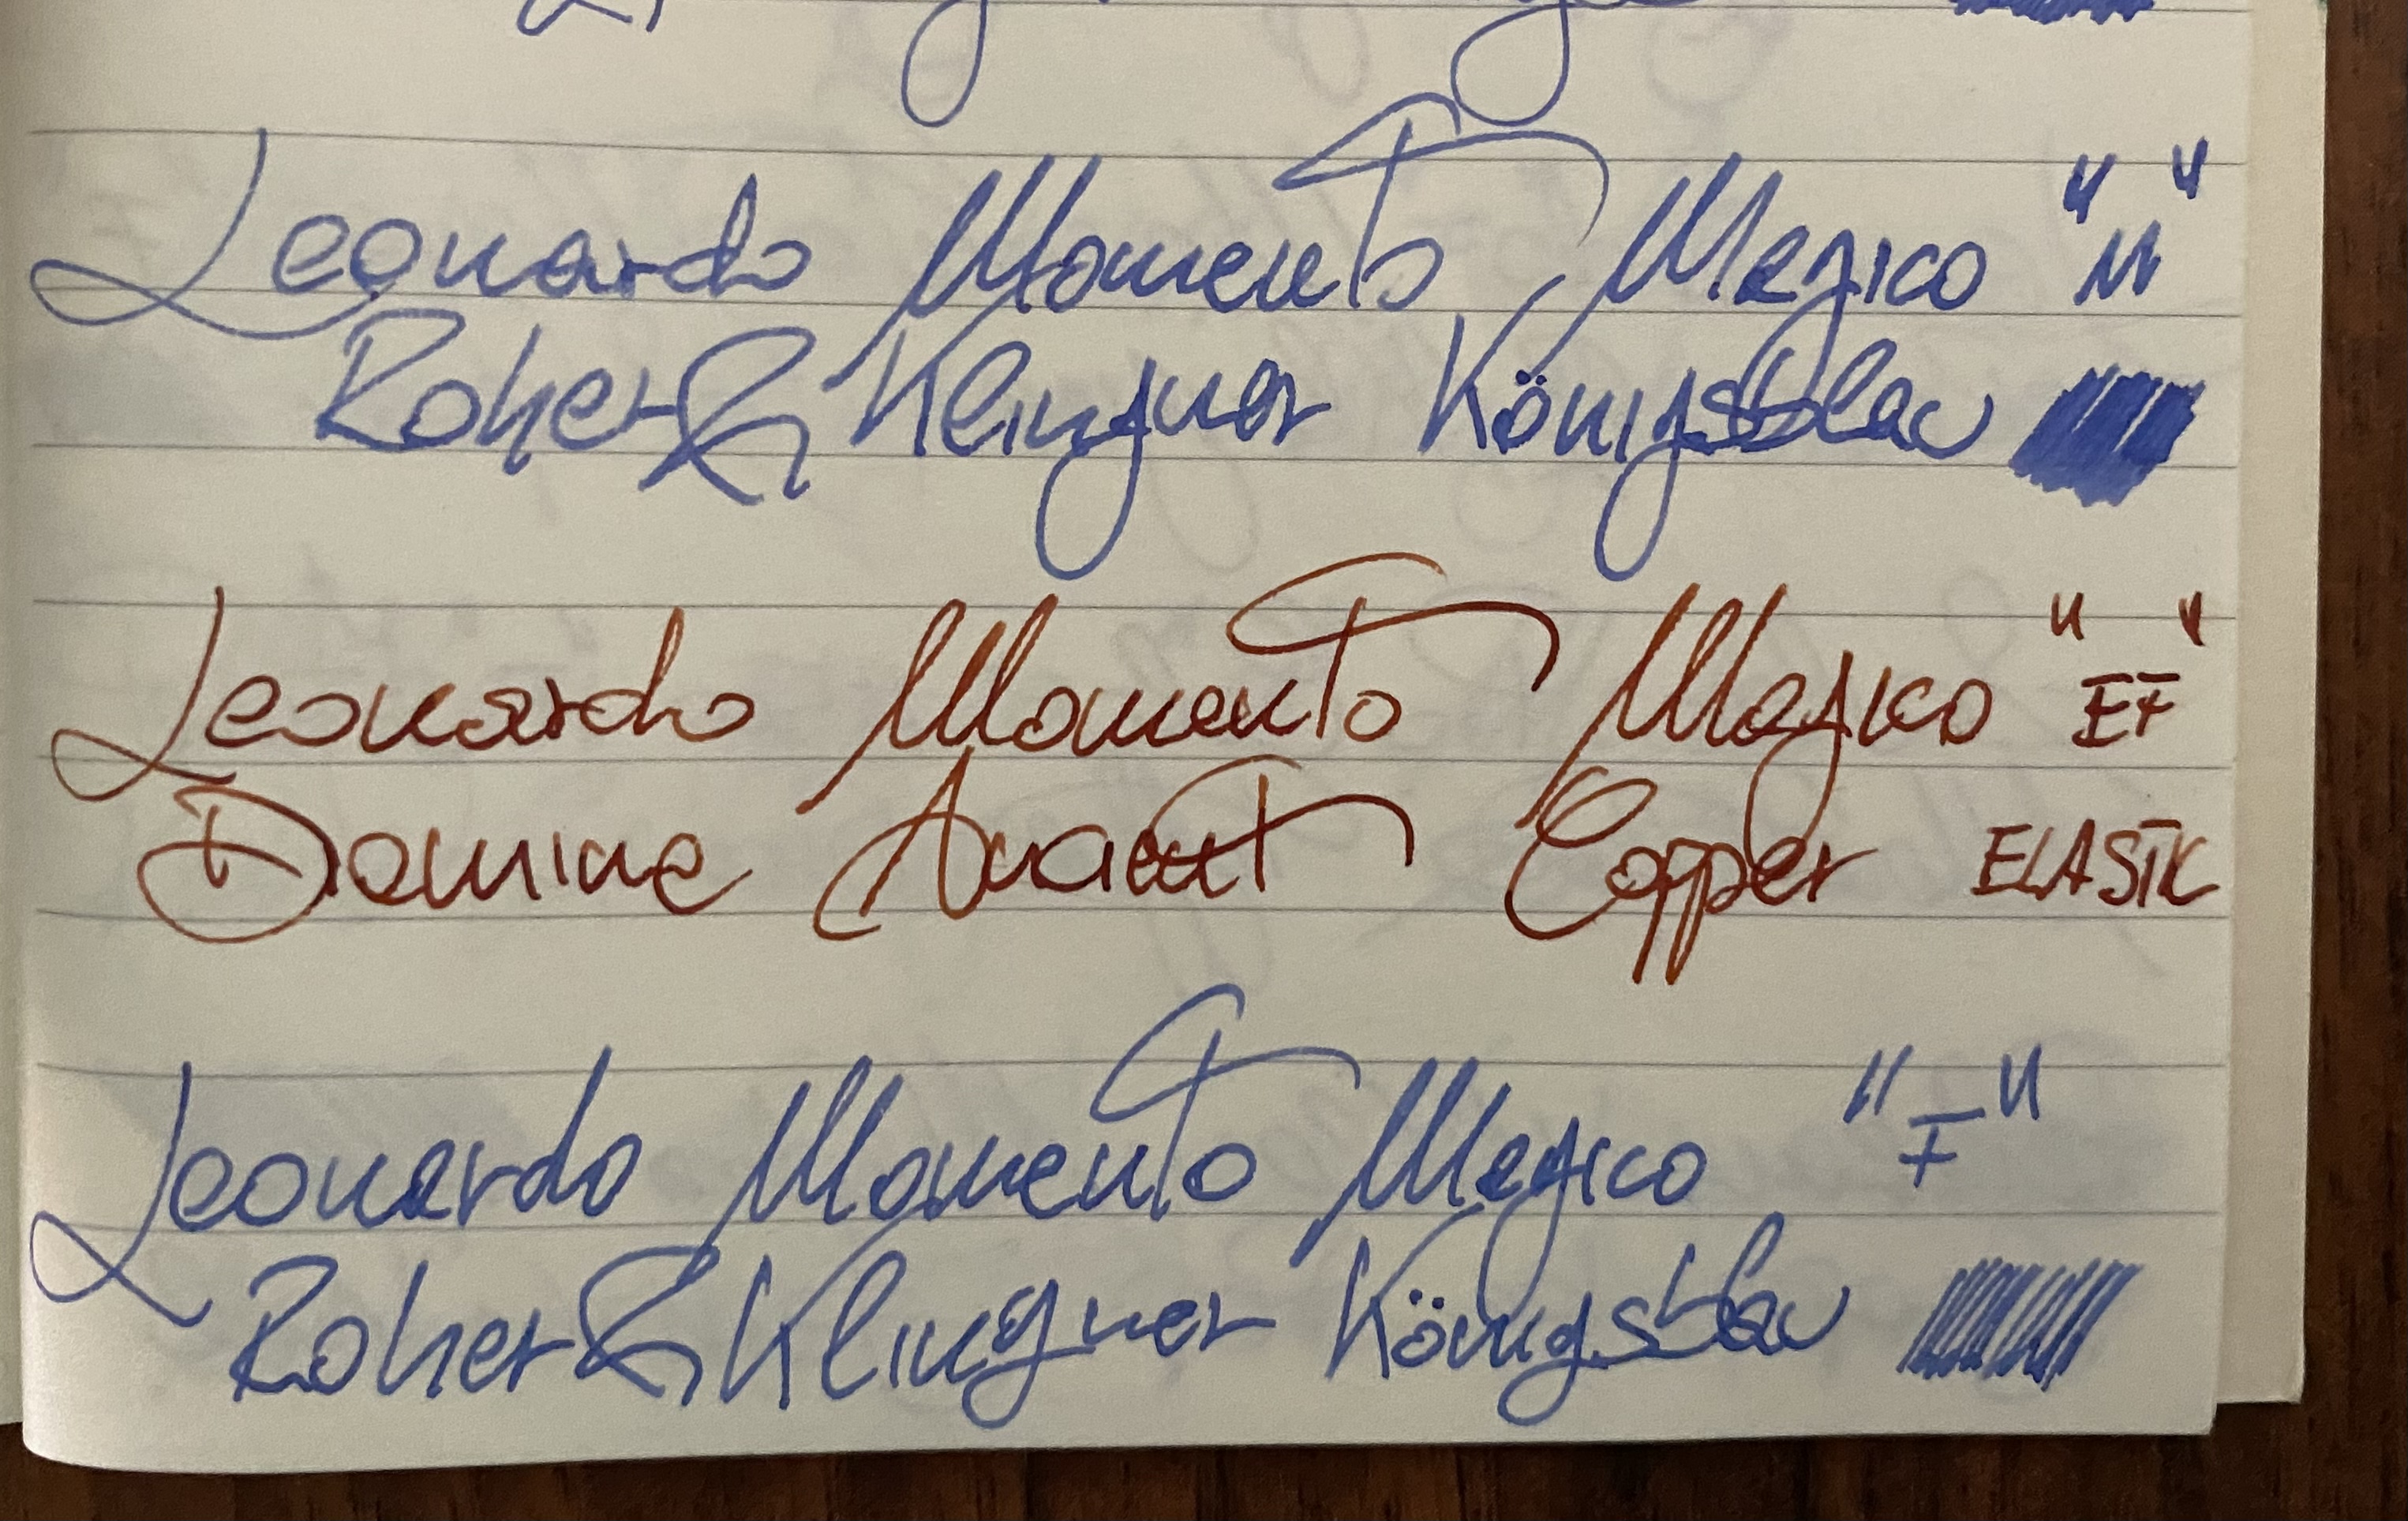 Leonardo Momento Magico "M"
Rohrer & Klingner Königsblau
Leonardo Momento Magico "EF"
Domine Ancient Copper ELASTIC
Leonardo Momento Magico "F"
Rohrer & Klingner Königsblau